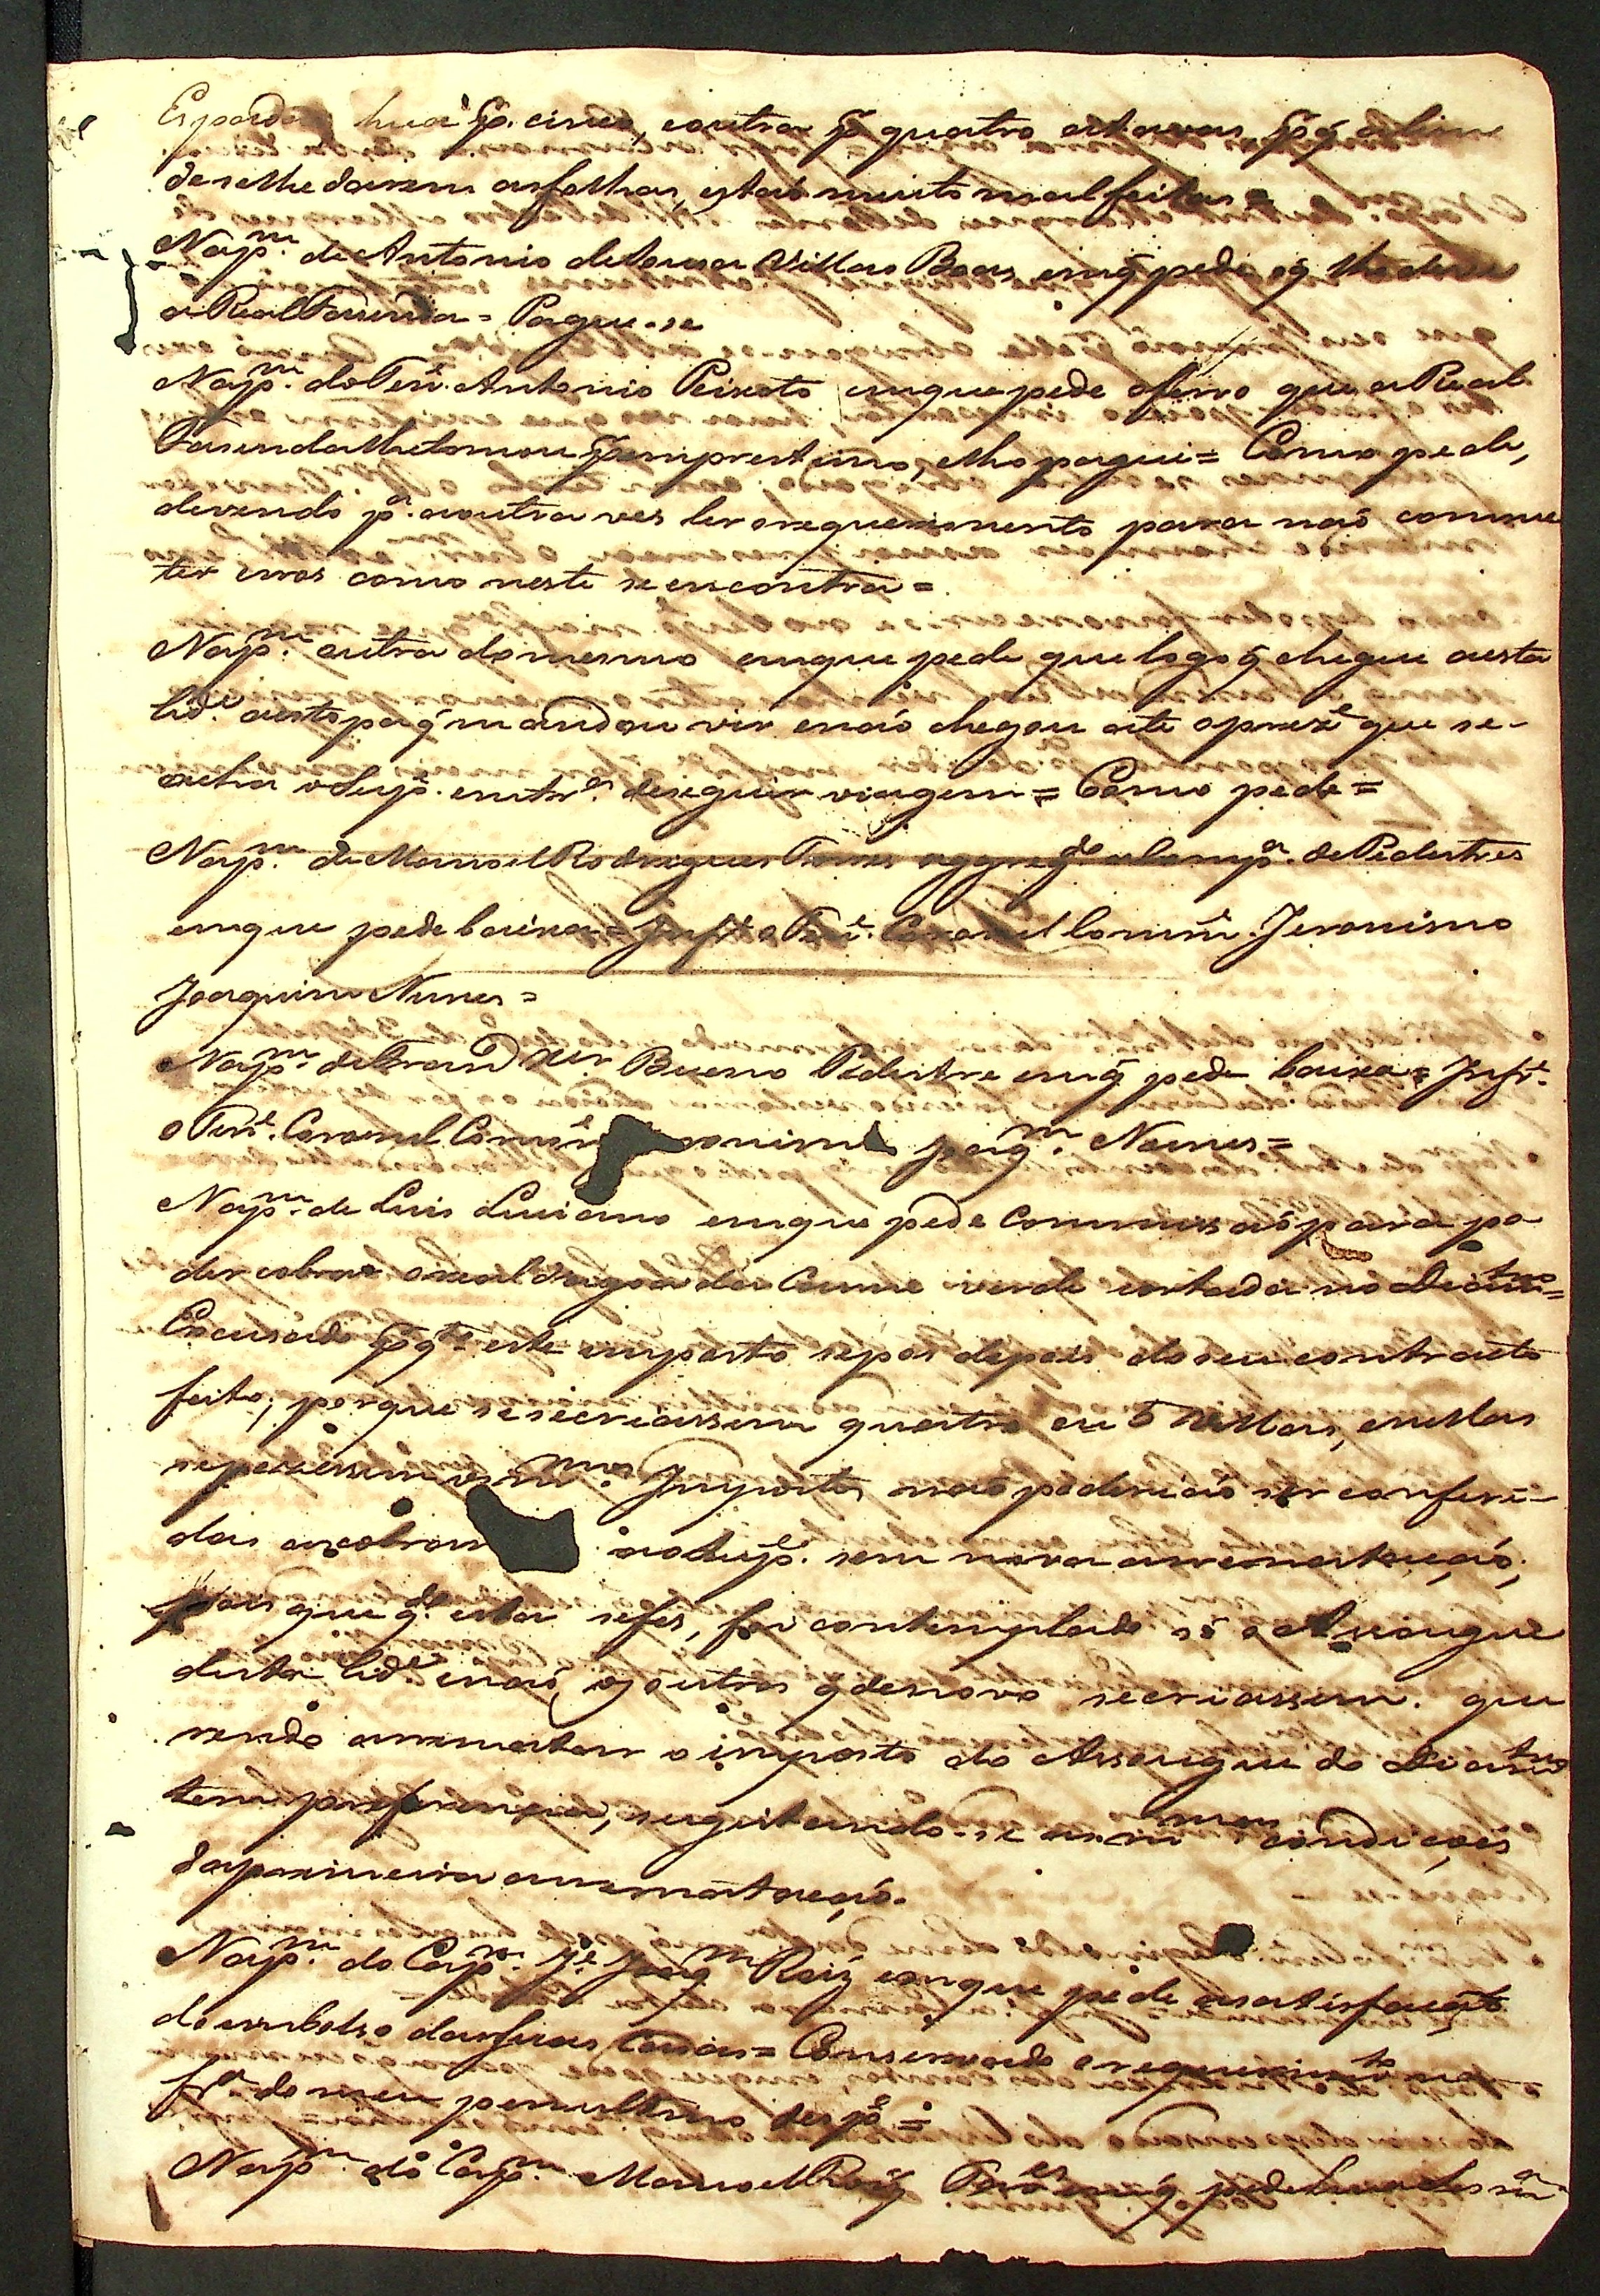 Espadas huã p. cinco, eoutra p. quatro oitavas, p. q alem
deselhe darem asfolhas, estaõ muito mal feitas =
Napm. de Antonio deSousa Villas Boas emq pede oq lhe deve
a Real Fasenda = Pague-se
Napm. doTene. Antonio Peixoto emque pede oferro que a Real
Fasenda lhe tomou p. emprestimo, elho pague = Como pede,
devendo pa. a outra ves ler o requerimento para naõ comme
ter erros como neste se encontra =
Napm. outra domesmo emque pede que logo q chegue aesta
Cide. aestopa q mandou vir enaõ chegou ate opreze que se-
acha odepo. emtra. deseguir viagem = Como pede =
Napm. de Manoel Rodrigues Torres aggrego. aCompa. dePedestres
emque pede baixa = Infe. o Tene. Coronel Comme. Jeronimo
Joaquim Nunes =
Napm. deFranco. Xer. Bueno Pedestre emq pede baixa = Infe.
o Tene. Coronel Comme. onimo Joaqm. Nunes =
Napm. de Luis Luciano emque pede Commissaõ para po
der cobrar o real dagoa da Carne verde cortada no Destro =
Escusado p. qto. este imposto sepos depois doseu contracto
feito; porque se secriassem quatro ou 5 Villas, enellas
sepozessem os mmos. Impostos naõ poderiaõ ser conferi-
das acobran aodepo. sem nova arrematacaõ;
pois que qdo. esta sefes, foi contemplado só o Assougue
desta Cide. enaõ, os outros q denovo secriassem. que
rendo arrematar o imposto do Assougue do Destro
tem preferencia, sugeitando-se as mmas condiçoẽs
daprimeira arrematacaõ.
Napm. do Capm. Je. Joaqm Roiz emque pede asatisfaçaõ
do embolso dassuas Casas = Conservado o requerimto na
fra. do meu penultimo despo =
Napm. do Capm. Manoel Roiz emq pede